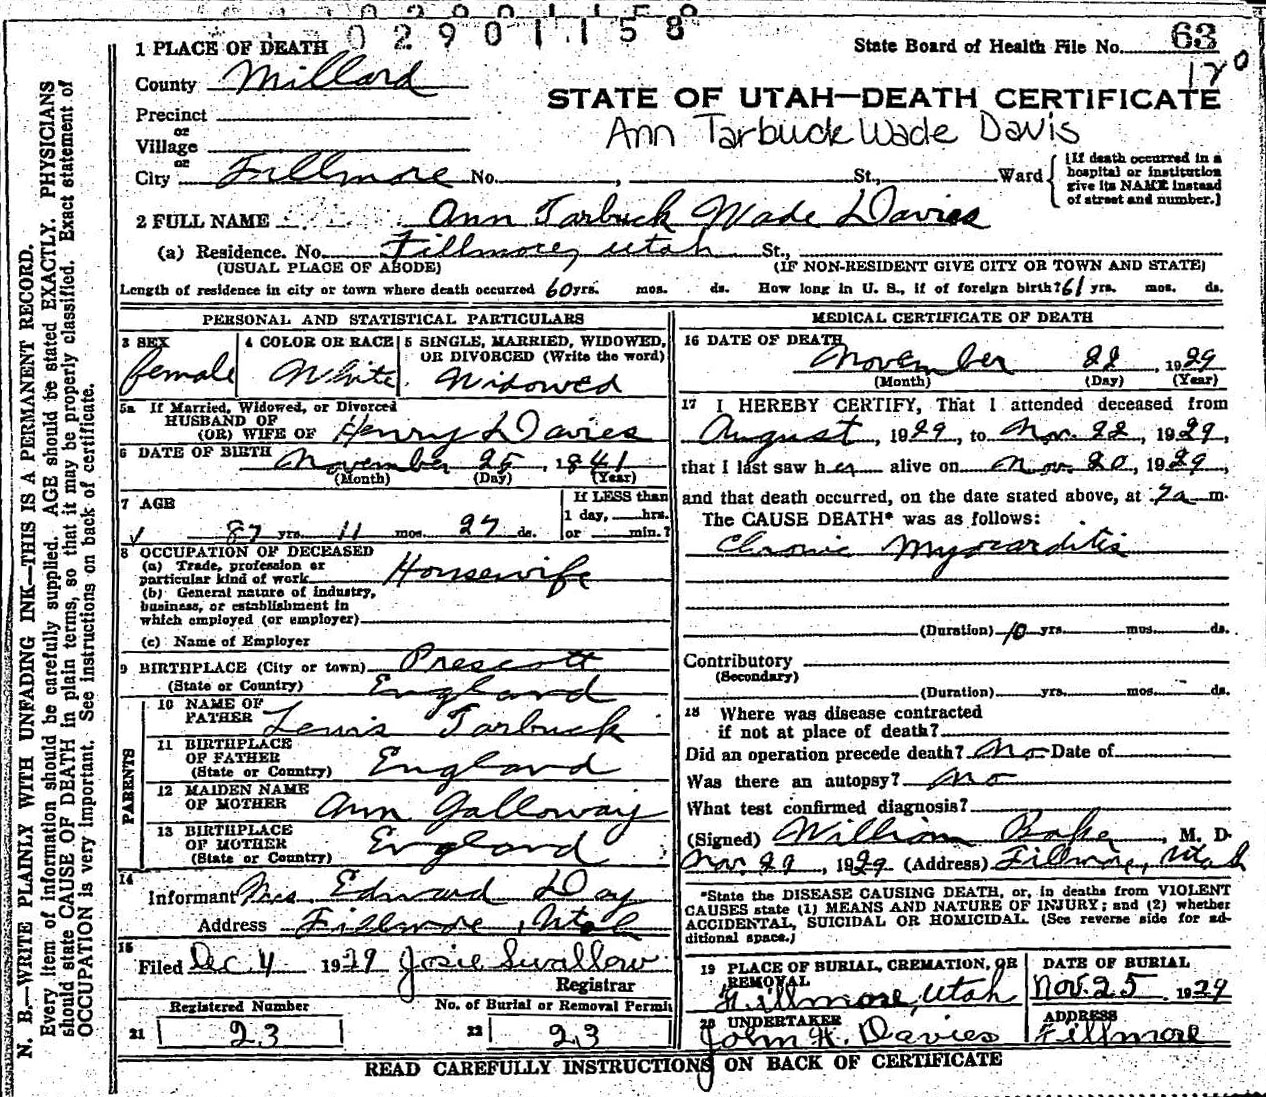 02901158
1 PLACE OF DEATH
State Board of Health File No. 63
170
County Millard
STATE OF UTAH—DEATH CERTIFICATE
Ann Tarbuck Wade Davis
Precinct
or
Village
or
City Fillmore No. , St., Ward
(If death occurred in a
hospital or institution
give its NAME instead
of street and number.)
2 FULL NAME Ann Tarbuck Wade Davies
(a) Residence. No. Fillmore, Utah St.,
(USUAL PLACE OF ABODE) (IF NON-RESIDENT GIVE CITY OR TOWN AND STATE)
Length of residence in city or town where death occurred 60 yrs. mos. ds. How long in U. S., if of foreign birth? 61 yrs. mos. ds.
PERSONAL AND STATISTICAL PARTICULARS
3 SEX
female
4 COLOR OR RACE
White
5 SINGLE, MARRIED, WIDOWED,
OR DIVORCED (Write the word)
Widowed
5a If Married, Widowed, or Divorced
HUSBAND OF
(OR) WIFE OF Henry Davies
6 DATE OF BIRTH November 25, 1841
(Month) (Day) (Year)
7 AGE
87 yrs. 11 mos. 27 ds.
If LESS than
1 day, hrs.
or min.?
8 OCCUPATION OF DECEASED
(a) Trade, profession or
particular kind of work Housewife
(b) General nature of industry,
business, or establishment in
which employed (or employer)
(c) Name of Employer
9 BIRTHPLACE (City or town) Prescott
(State or Country) England
PARENTS
10 NAME OF
FATHER Lewis Tarbuck
11 BIRTHPLACE
OF FATHER
(State or Country) England
12 MAIDEN NAME
OF MOTHER Ann Galloway
13 BIRTHPLACE
OF MOTHER
(State or Country) England
14
Informant Mrs Edward Day
Address Fillmore, Utah
15
Filed Dec 4 1929 Josie Swallow
Registrar
Registered Number No. of Burial or Removal Permit
21 23 22 23
MEDICAL CERTIFICATE OF DEATH
16 DATE OF DEATH
November 22, 1929
(Month) (Day) (Year)
17 I HEREBY CERTIFY, That I attended deceased from
August, 1929, to Nov. 22, 1929,
that I last saw her alive on Nov. 20, 1929,
and that death occurred, on the date stated above, at 7a m.
The CAUSE DEATH* was as follows:
Chronic Myocarditis
(Duration) 10 yrs. mos. ds.
Contributory
(Secondary)
(Duration) yrs. mos. ds.
18 Where was disease contracted
if not at place of death?
Did an operation precede death? No Date of
Was there an autopsy? No
What test confirmed diagnosis?
(Signed) William , M. D.
Nov. 29, 1929 (Address) Fillmore, Utah
*State the DISEASE CAUSING DEATH, or, in deaths from VIOLENT
CAUSES state (1) MEANS AND NATURE OF INJURY; and (2) whether
ACCIDENTAL, SUICIDAL OR HOMICIDAL. (See reverse side for ad-
ditional space.)
19 PLACE OF BURIAL, CREMATION, OR
REMOVAL
Fillmore, Utah
DATE OF BURIAL
Nov. 25 1929
20 UNDERTAKER
John H. Davies
ADDRESS
Fillmore
READ CAREFULLY INSTRUCTIONS ON BACK OF CERTIFICATE
N. B.—WRITE PLAINLY WITH UNFADING INK—THIS IS A PERMANENT RECORD.
Every item of information should be carefully supplied. AGE should be stated EXACTLY. PHYSICIANS
should state CAUSE OF DEATH in plain terms, so that it may be properly classified. Exact statement of
OCCUPATION is very important. See instructions on back of certificate.